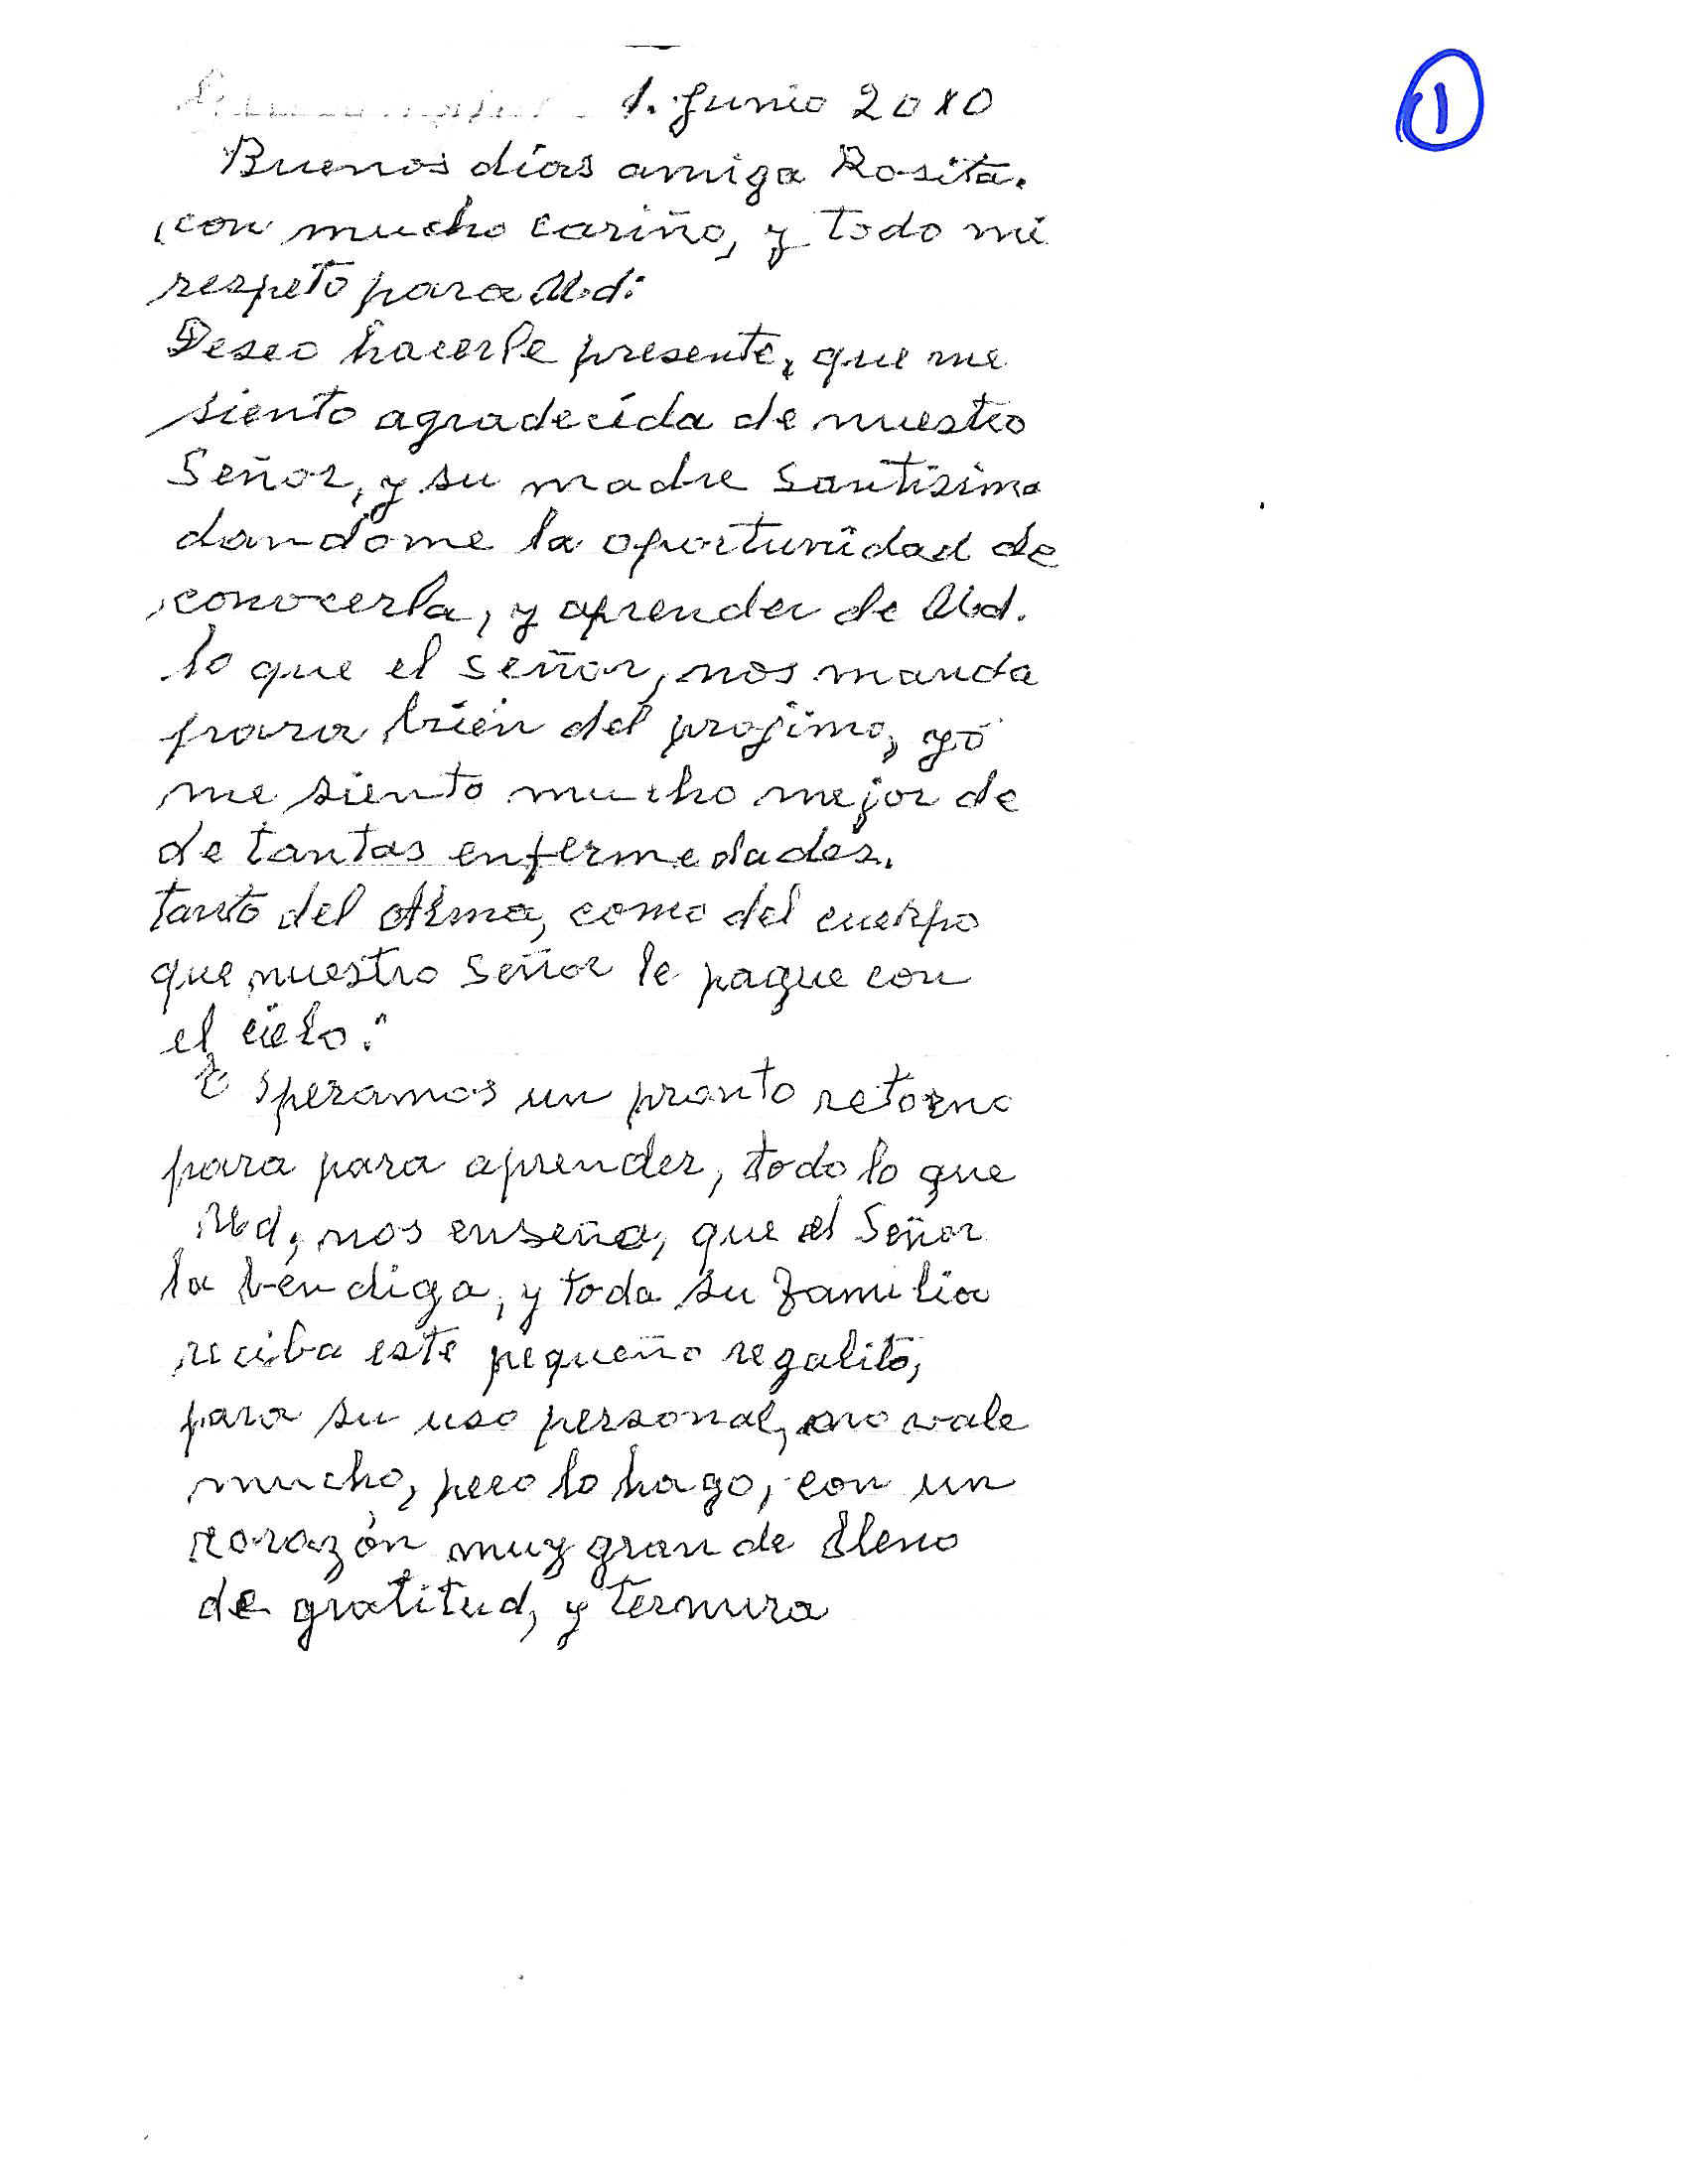 1. Junio 2010
①
Buenos días amiga Rosita.
con mucho cariño, y todo mi
respeto para Ud:
Deseo hacerle presente, que me
siento agradecida de nuestro
Señor, y su madre Santisima
dandome la oportunidad de
conocerla, y aprender de Ud.
lo que el Señor, nos manda
para bién del projimo, yó
me siento mucho mejor de
de tantas enfermedades.
tanto del Alma, como del cuerpo
que nuestro Señor le pague con
el cielo."
Esperamos un pronto retorno
para para aprender, todo lo que
Ud, nos enseña, que el Señor
la bendiga, y toda su familia
reciba este pequeño regalito,
para su uso personal, no vale
mucho, pero lo hago, con un
corazón muy grande lleno
de gratitud, y ternura